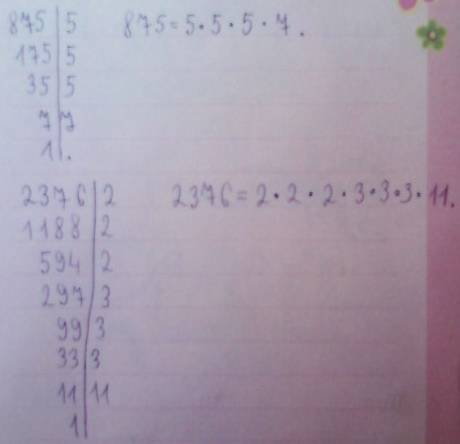 875 | 5 875 = 5 · 5 · 5 · 7 .
175 | 5
35 | 5
7 | 7
1 | .
2376 | 2 2376 = 2 · 2 · 2 · 3 · 3 · 3 · 11.
1188 | 2
594 | 2
297 | 3
99 | 3
33 | 3
11 | 11
1 |